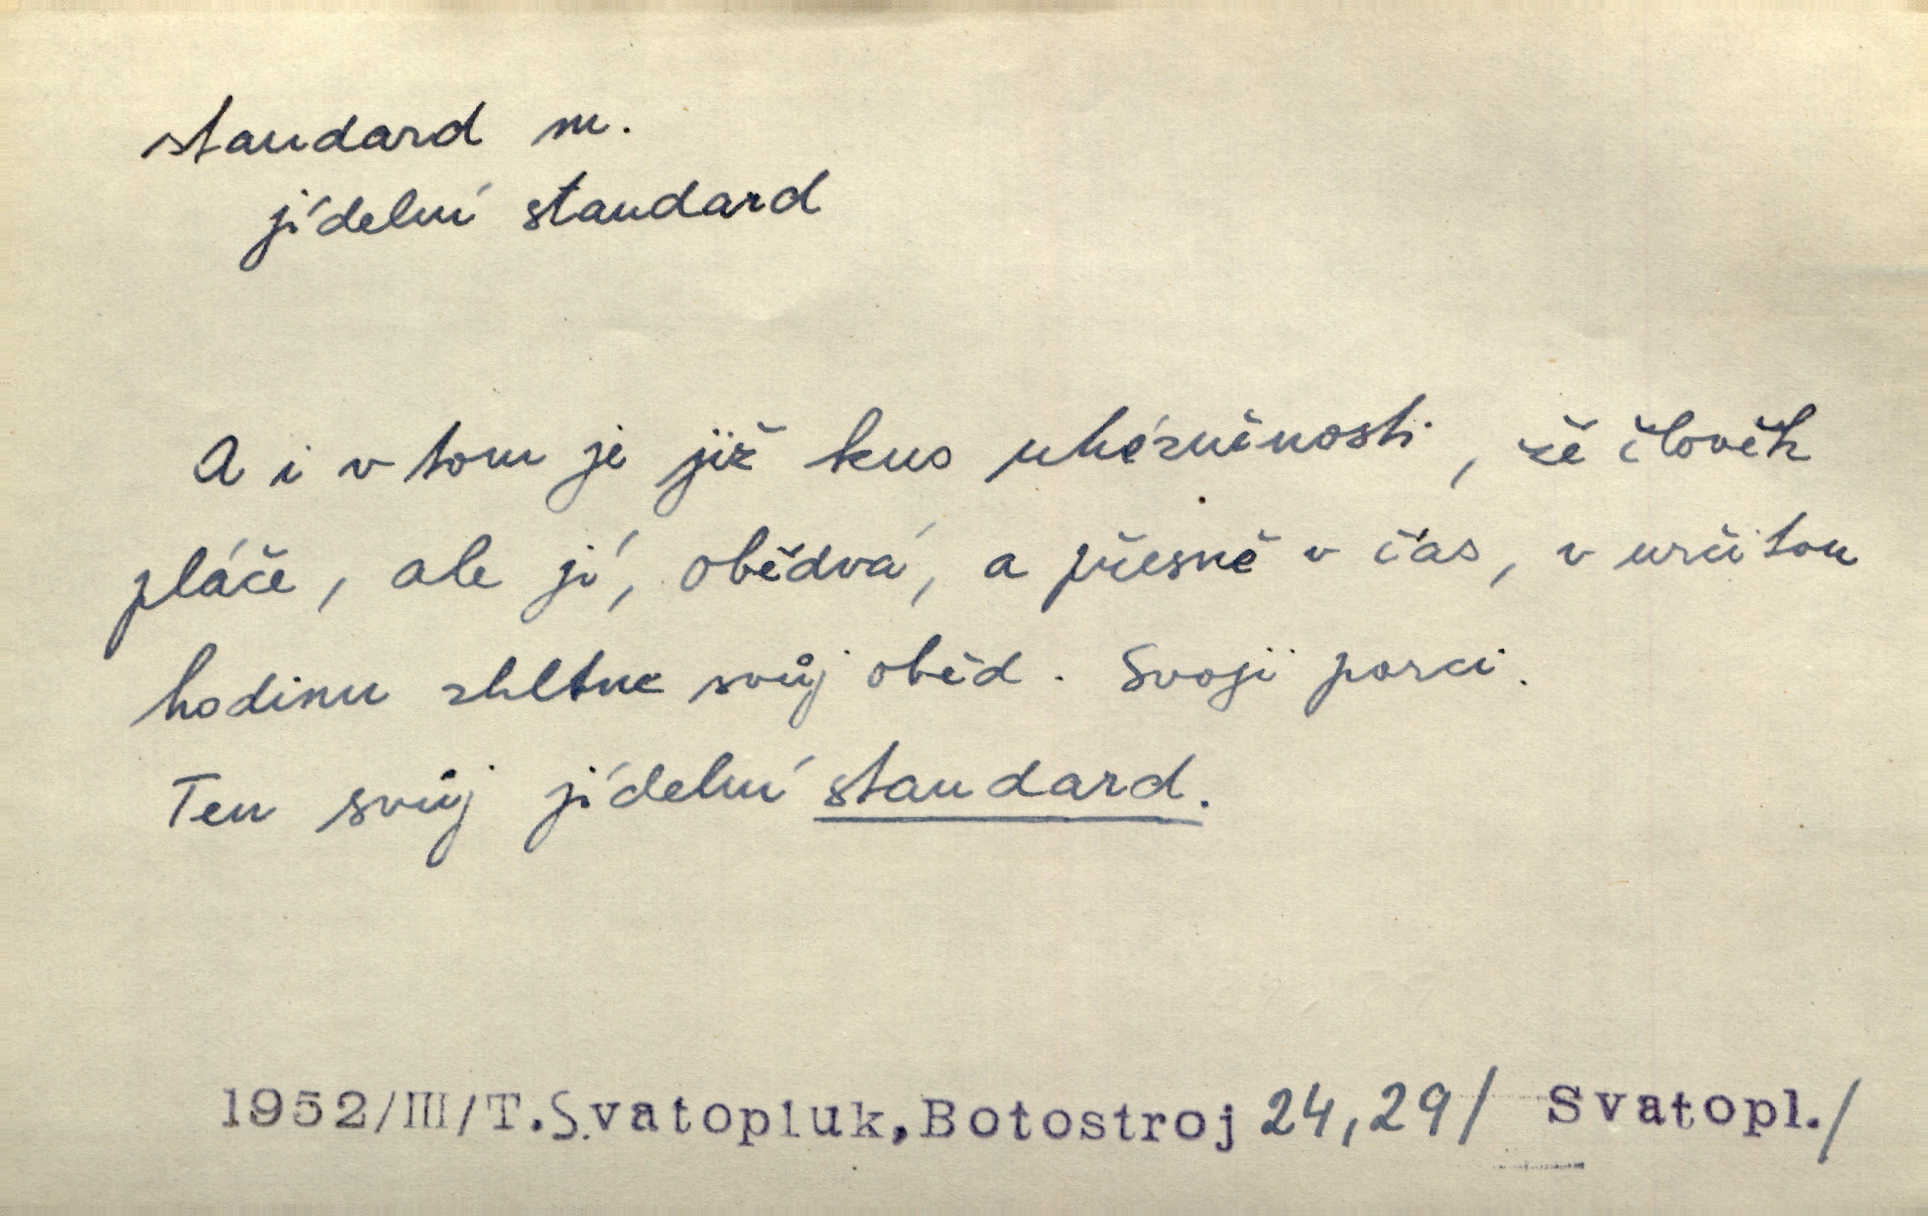 standard m.
jídelní standard
A i v tom je již kus ukázněnosti, že člověk
pláče, ale jí, obědvá, a přesně v čas, v určitou
hodinu zhltne svůj oběd. Svoji porci.
Ten svůj jídelní standard.
1952/III/T.Svatopluk,Botostroj 24,29/ Svatopl./